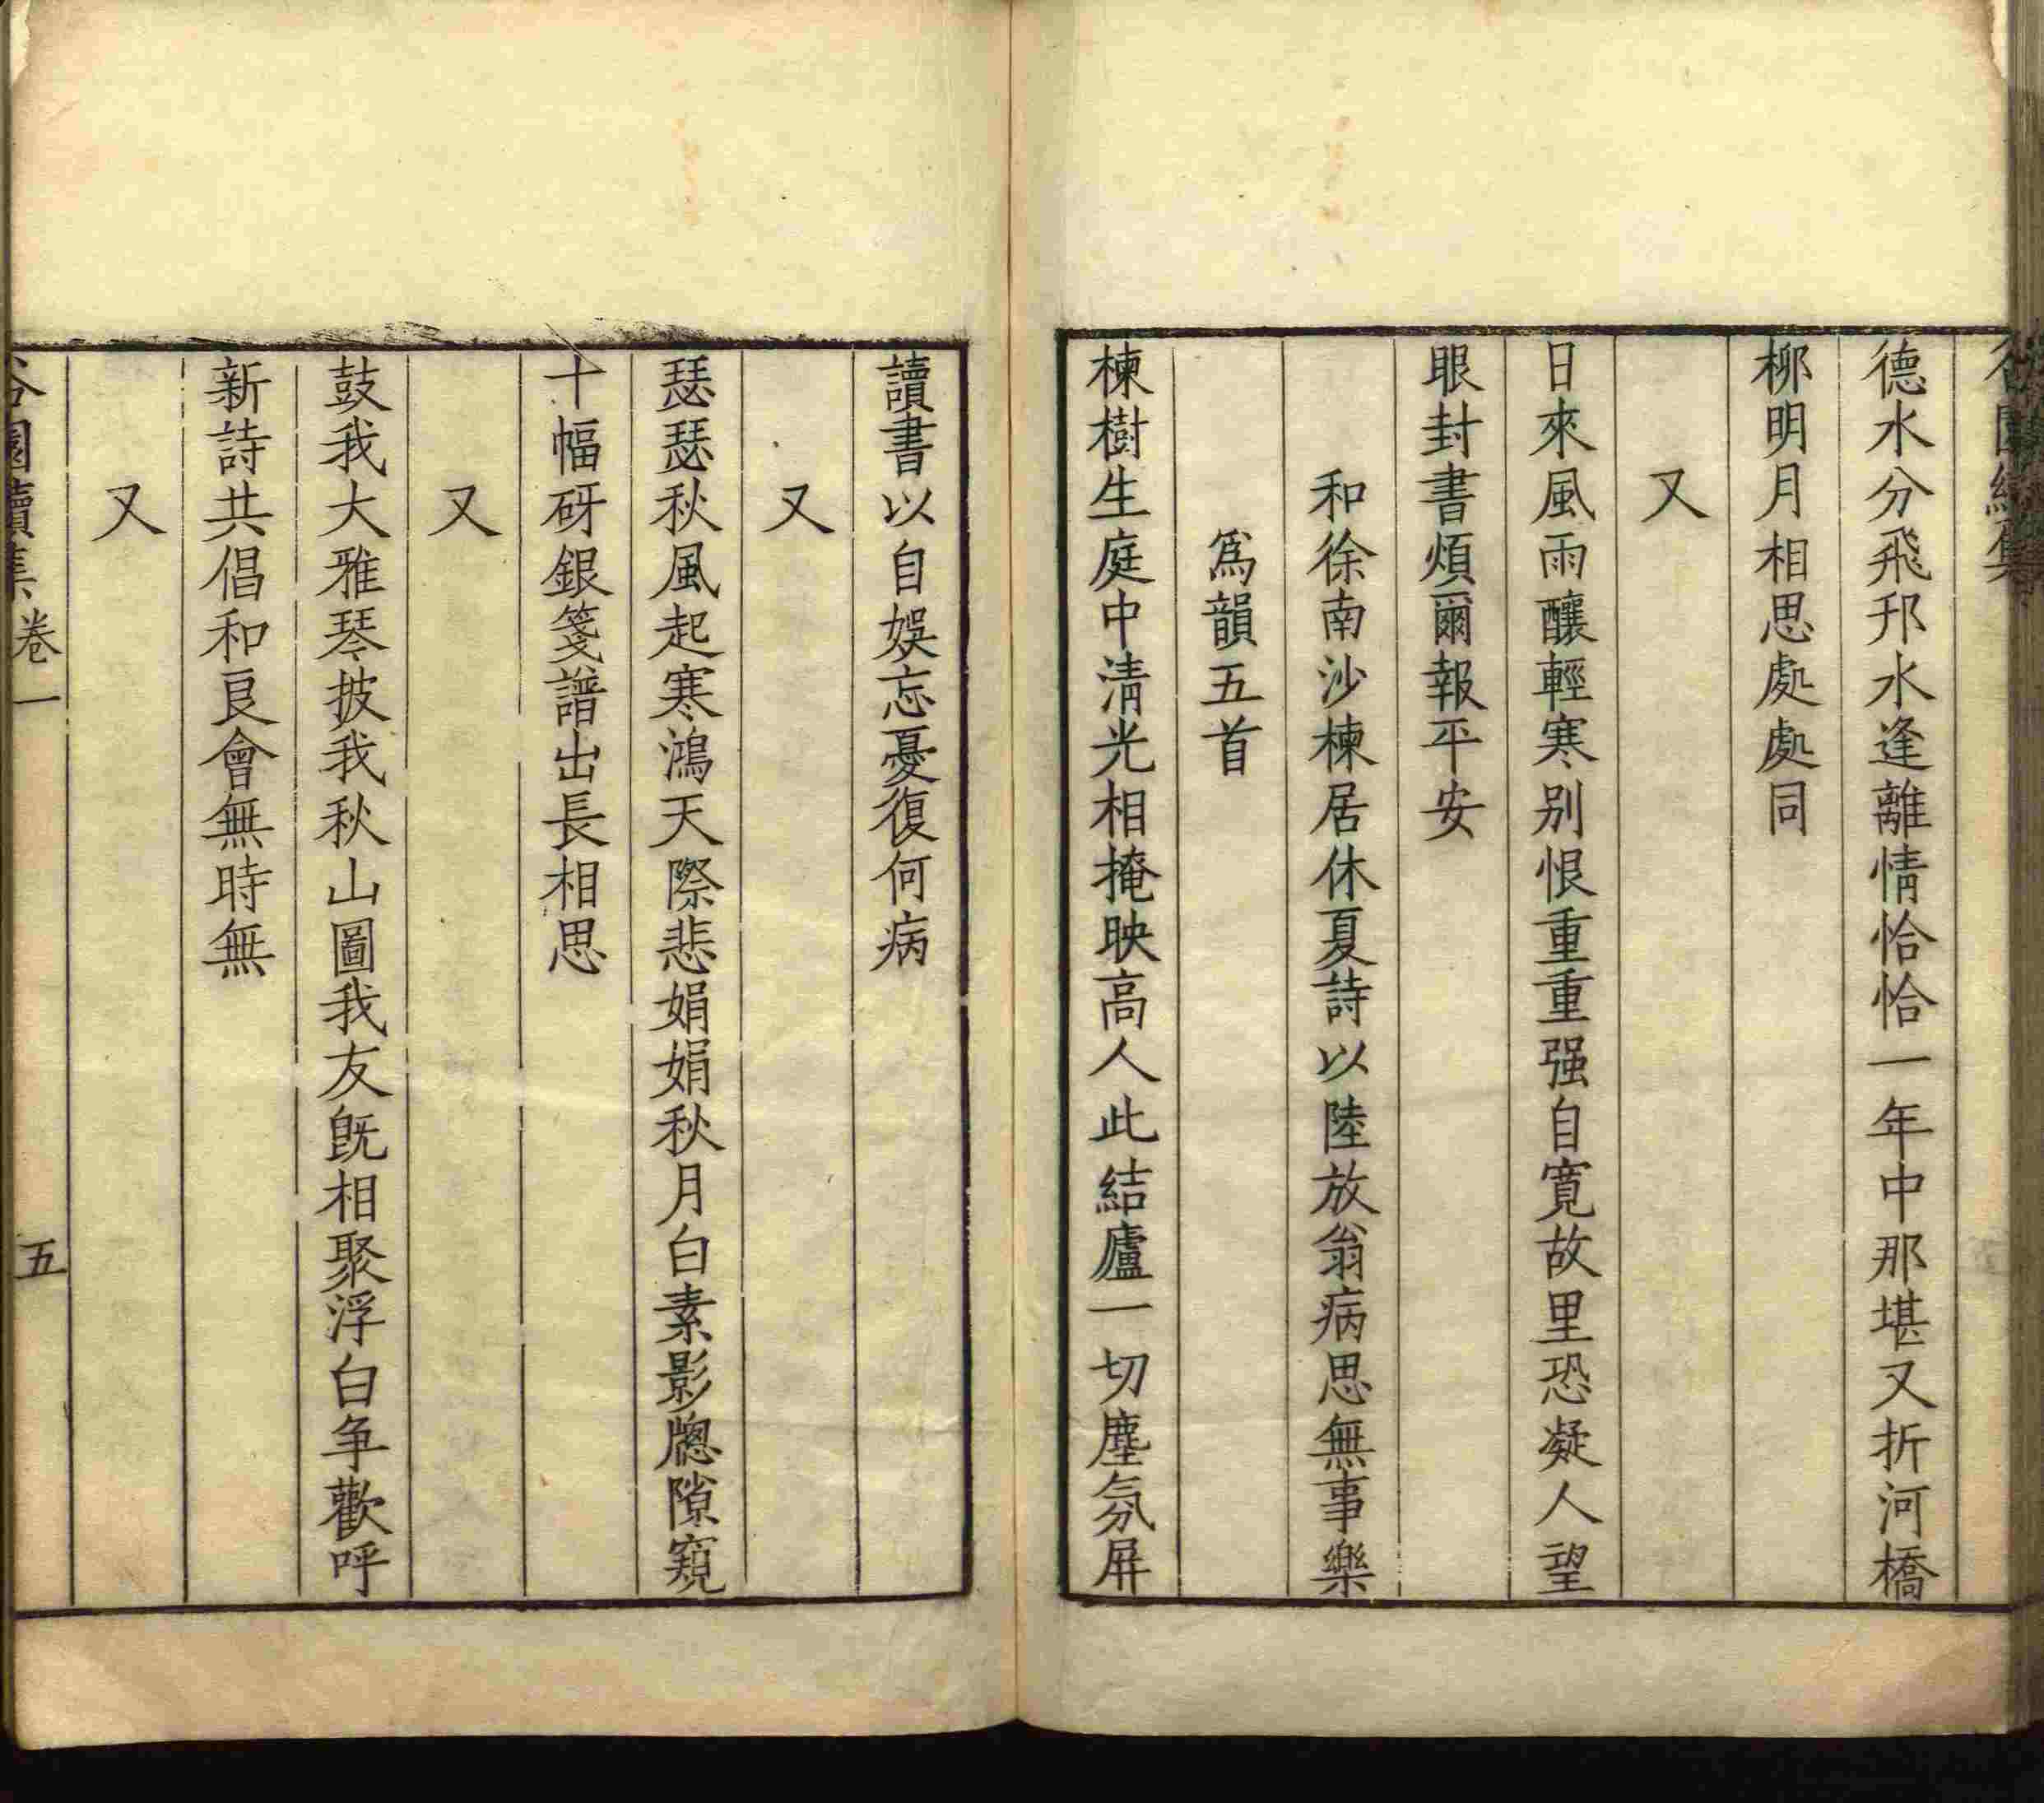 德水分飛邗水逢離情恰恰一年中那堪又折河橋
柳明月相思處處同
又
日來風雨釀輕寒别恨重重强自寬故里恐凝人望
眼封書煩爾報平安
和徐南沙楝居休夏詩以陸放翁病思無事樂
爲韻五首
楝樹生庭中清光相掩映高人此結廬一切塵氛屏
讀書以自娛忘憂復何病
又
瑟瑟秋風起寒鴻天際悲娟娟秋月白素影牕隙窺
十幅砑銀箋譜出長相思
又
鼓我大雅琴披我秋山圖我友旣相聚浮白争歡呼
新詩共倡和良會無時無
又
谷園續集 卷一 五